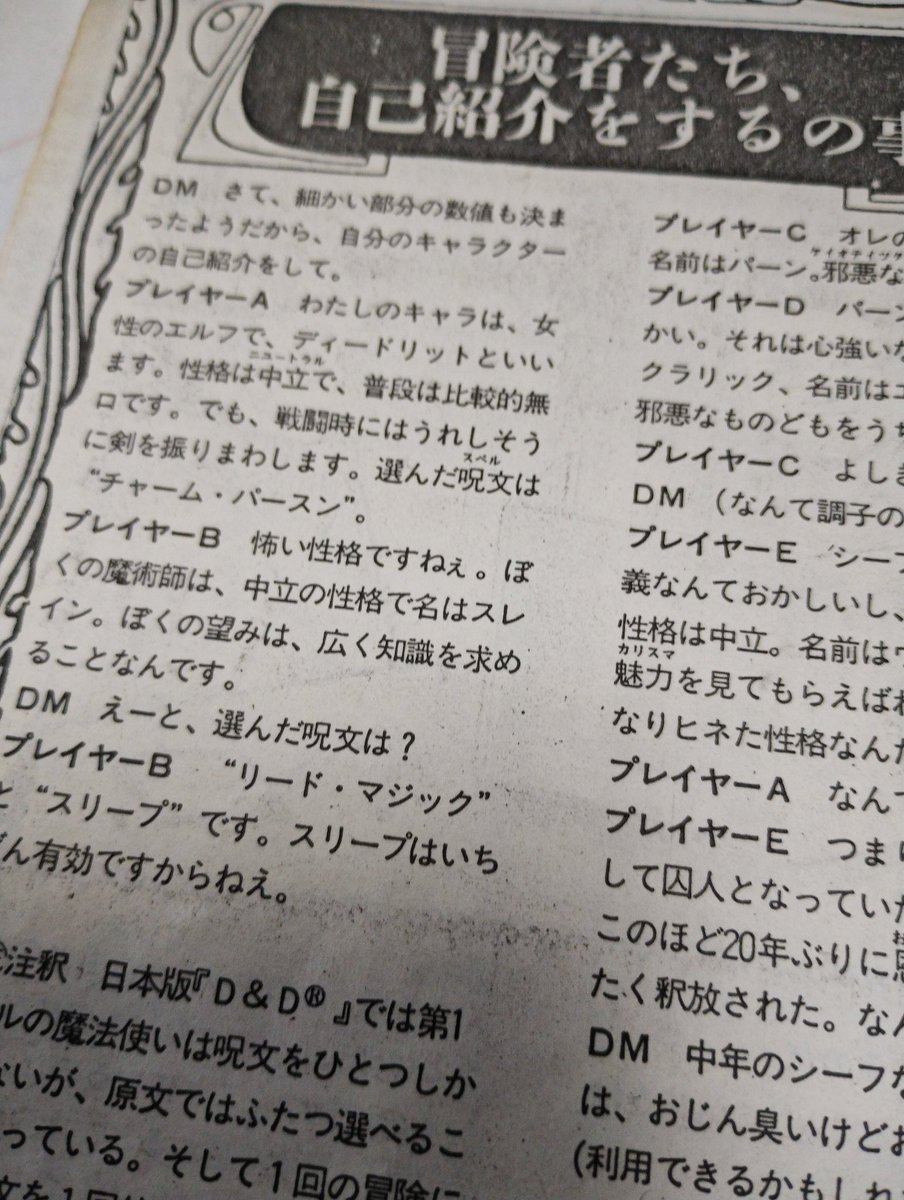 冒険者たち、
自己紹介をするの事
DM　さて、細かい部分の数値も決ま
ったようだから、自分のキャラクター
の自己紹介をして。
プレイヤーA　わたしのキャラは、女
性のエルフで、ディードリットといい
ニュートラル
ます。性格は中立で、普段は比較的無
口です。でも、戦闘時にはうれしそう
スペル
に剣を振りまわします。選んだ呪文は
“チャーム・パースン”。
プレイヤーB　怖い性格ですねぇ。ぼ
くの魔術師は、中立の性格で名はスレ
イン。ぼくの望みは、広く知識を求め
ることなんです。
DM　えーと、選んだ呪文は？
プレイヤーB　“リード・マジック”
と“スリープ”です。スリープはいち
ん有効ですからねえ。
注釈　日本版『D＆D®』では第1
ルの魔法使いは呪文をひとつしか
ないが、原文ではふたつ選べるこ
っている。そして1回の冒険に
プレイヤーC　オレの
ケイオティック
名前はパーン。邪悪な
プレイヤーD　パーン
かい。それは心強いな
クラリック、名前はエ
邪悪なものどもをうち
プレイヤーC　よしき
DM　（なんて調子の
プレイヤーE　シーフ
義なんておかしいし、
性格は中立。名前はウ
カリスマ
魅力を見てもらえばわ
なりヒネた性格なんだ
プレイヤーA　なんで
プレイヤーE　つまり
して囚人となっていた
このほど20年ぶりに恩
たく釈放された。なん
DM　中年のシーフな
は、おじん臭いけどお
（利用できるかもしれ